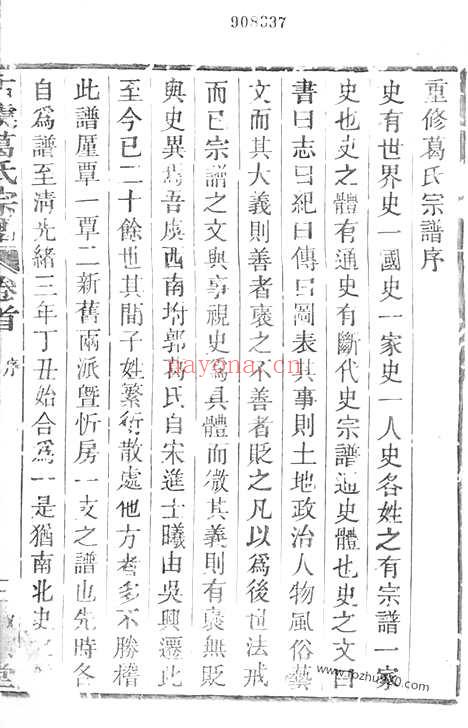 908337
重修葛氏宗譜序
史有世界史一國史一家史一人史各姓之有宗譜一家
史也史之體有通史有斷代史宗譜通史體也史之文曰
書曰志曰紀曰傳曰圖表其事則土地政治人物風俗藝
文而其大義則善者褒之不善者貶之凡以爲後世法戒
而已宗譜之文與事視史爲具體而微其義則有褒無貶
與史異焉吾虞西南坿郭葛氏自宋進士曦由吳興遷此
至今已二十餘世其間子姓繁衍散處他方者多不勝稽
此譜厪覃一覃二新舊兩派曁忻房一支之譜也先時各
自爲譜至淸光緖三年丁丑始合爲一是猶南北史之
古虞葛氏宗譜 卷首 序 堂
nayona.cn
www.fozhu920.com